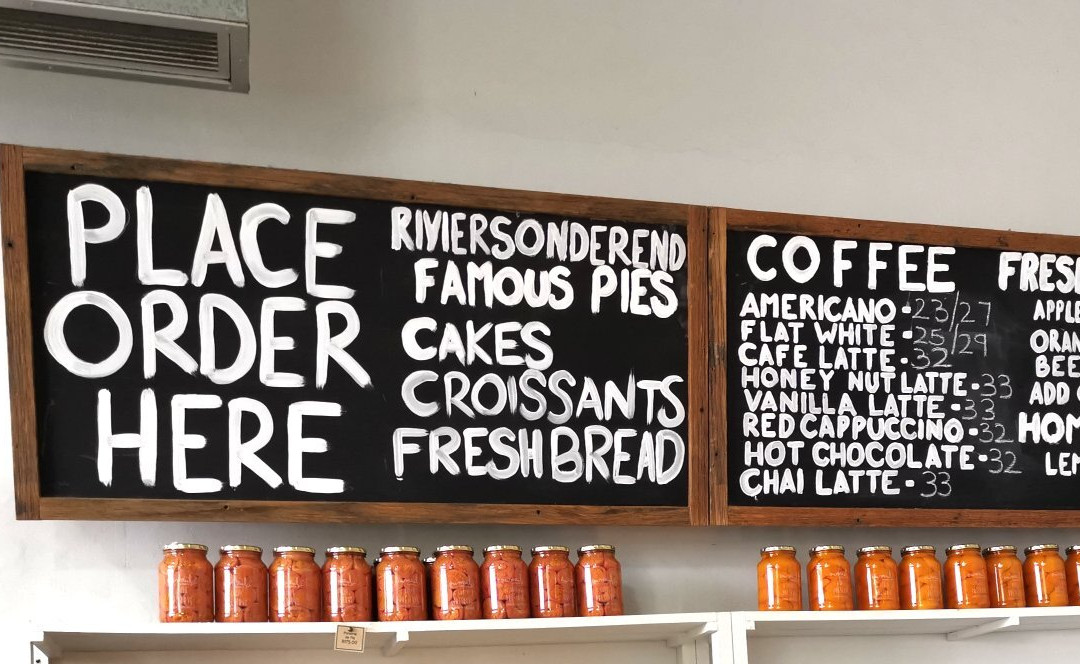 PLACE
ORDER
HERE
RIVIERSONDEREND
FAMOUS PIES
CAKES
CROISSANTS
FRESH BREAD
COFFEE
AMERICANO - 23/27
FLAT WHITE - 25/29
CAFE LATTE - 32
HONEY NUT LATTE - 33
VANILLA LATTE - 33
RED CAPPUCCINO - 32
HOT CHOCOLATE - 32
CHAI LATTE - 33
FRES
APPLE
ORAN
BEE
ADD
HOM
LEM